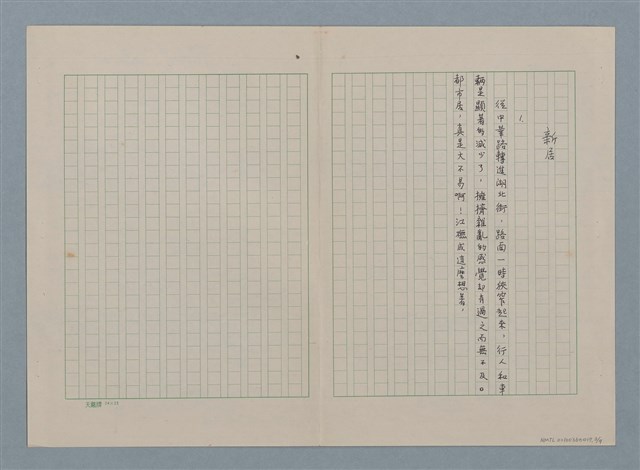 新居
1.
從中葉路轉進湖北街，路面一時狹窄起來，行人和車
輛是顯著的減少了，擁擠雜亂的感覺卻有過之而無不及。
都市居，真是大不易啊！江振成這麼想著。
天龍牌